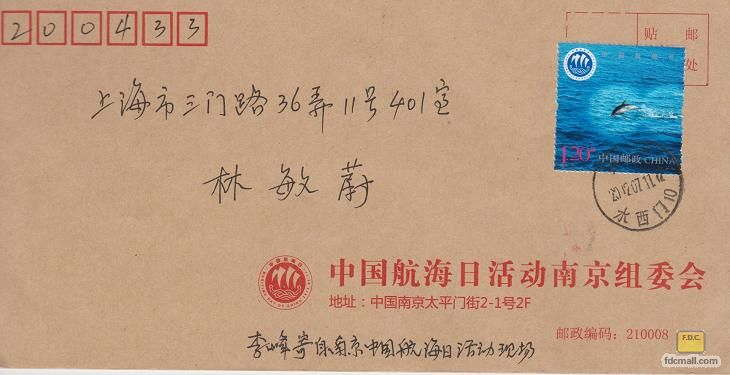 200433
贴 邮
处
中国航海日
1.20元 中国邮政 CHINA
上海市三门路36弄11号401室
林敏蔚
2012.07.11.12
中国航海日活动南京组委会
地址：中国南京太平门街2-1号2F
邮政编码：210008
李峰寄自南京中国航海日活动现场
F.D.C.
fdcmall.com